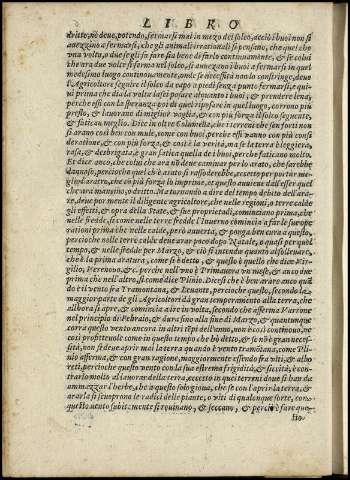 LIBRO
dritto, nõ deue, potendo, fermarsi mai in mezo del solco, acciò i buoi non si
auezzino a fermarsi, che gli animali irrationali si pensano, che quel che
una volta, o due se gli fa fare sia bene di farlo continuamente, & se colui
che ara due volte si ferma nel solco, si auezzano i buoi a fermarsi in quel
medesimo luogo continouamente, onde se necessità non lo constringe, deue
l'Agricoltore seguire il solco da capo a piedi senza punto fermarsi, & qui
ui prima che dia la volta lasci posare alquanto i buoi, & prendere lena,
perche essi con la speranza poi di quel riposare in quel luogo, corrono più
presto, & lauorano di miglior voglia, & con più forza il solco seguente,
& fatican meglio. Dice in oltre Columella, che i terreni che son forti non
si arano così ben con mule, come con buoi, perche essi vanno con più consi
deratione, & con più forza, & così è la verità, ma se la terra è leggiera,
rasa, & desbrigata, è gran fatica quella dei buoi, perche faticano molto.
Et dice anco, che colui che ara nõ deue caminar per lo arato, che sarebbe
dannoso, percioche quel ch'è arato si rassoderebbe, eccetto per portar me
glio l'aratro, che con più forza lo imprime, et questo auuiene dall'esser quel
che ara mancino, o dritto. Ma tornando a dire del tempo debito dell'ara-
re, deue por mente il diligente agricoltore, che nelle regioni, o terre calde
gli effetti, & opra della State, & sue proprietadi, cominciano prima, che
nelle fredde, & che nelle terre fredde l'Inuerno comincia a far le sue ope
rationi prima che nelle calde, però auuerta, & ponga ben cura a questo,
percioche nelle terre calde deue arar poco dopo Natale, o quasi per quel
tempo, & nelle fredde per Marzo, & ciò s'intende quanto al solleuare,
che è la prima aratura, come s'è detto, & questo è quello che dice Vir-
gilio, Vere nouo, & c. perche nell'uno è Primauera un mese, & anco due
prima che nell'altro, sì come dice Plinio. Dicesi che è ben arare anco quã
do è il vento fra Tramontana, & Leuante, percioche questo, secondo la
maggior parte de gli Agricoltori dà gran temperamento alla terra, che
all'hora si apre, & comincia a dire in volta, secondo che afferma Varrone
nel principio di Febraio, & dura sino al fine di Marzo, & quantunque
corra questo vento ancora in altri tẽpi dell'anno, non è così continouo, ne
così profitteuole come in questo tempo che hò detto, & se nõ è gran neces-
sità, non si deue aprir mai la terra quando è vento tramõtana, come Pli-
nio afferma, & con gran ragione, maggiormente essendo fra viti, & albo
reti, percioche questo vento con la sua estrema frigidità, & siccità, è con-
trario molto al lauorar della terra, eccetto in quei terreni doue si han da
ammazzar l'herbe, che a questo solo gioua, che se con l'aprir la terra, &
ararla si scuoprono le radici delle piante, o viti di qualonque sorte, con
questo vento subitamente si rouinano, & seccano, & perciò fà fare que-
sto